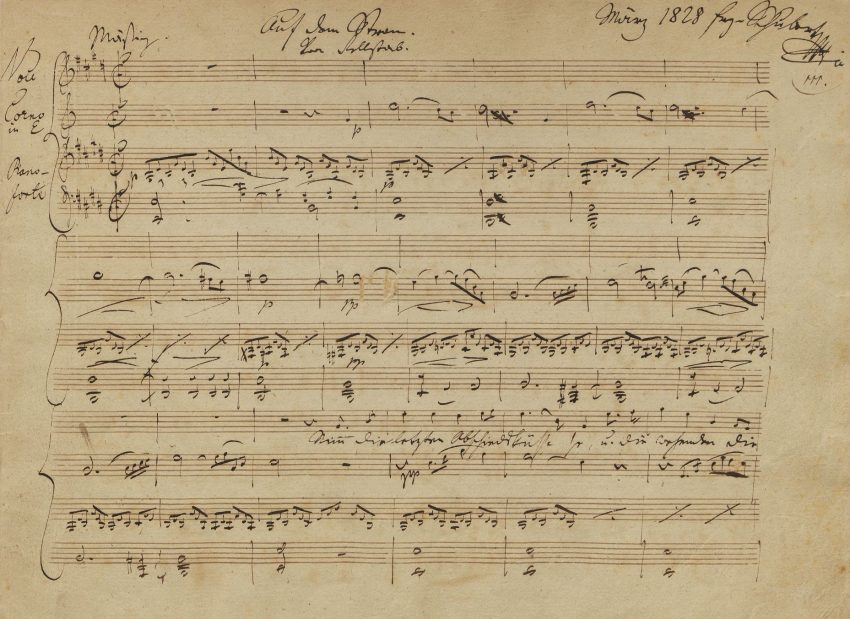 Auf dem Strom.
März 1828 Frz. Schubert
Mäßig.
Von Rellstab.
Corno
in E
Piano-
forte
p
p
p
p
pp
p
pp
Nimm die letzten Abschiedsküsse, u. die wehenden die
pp